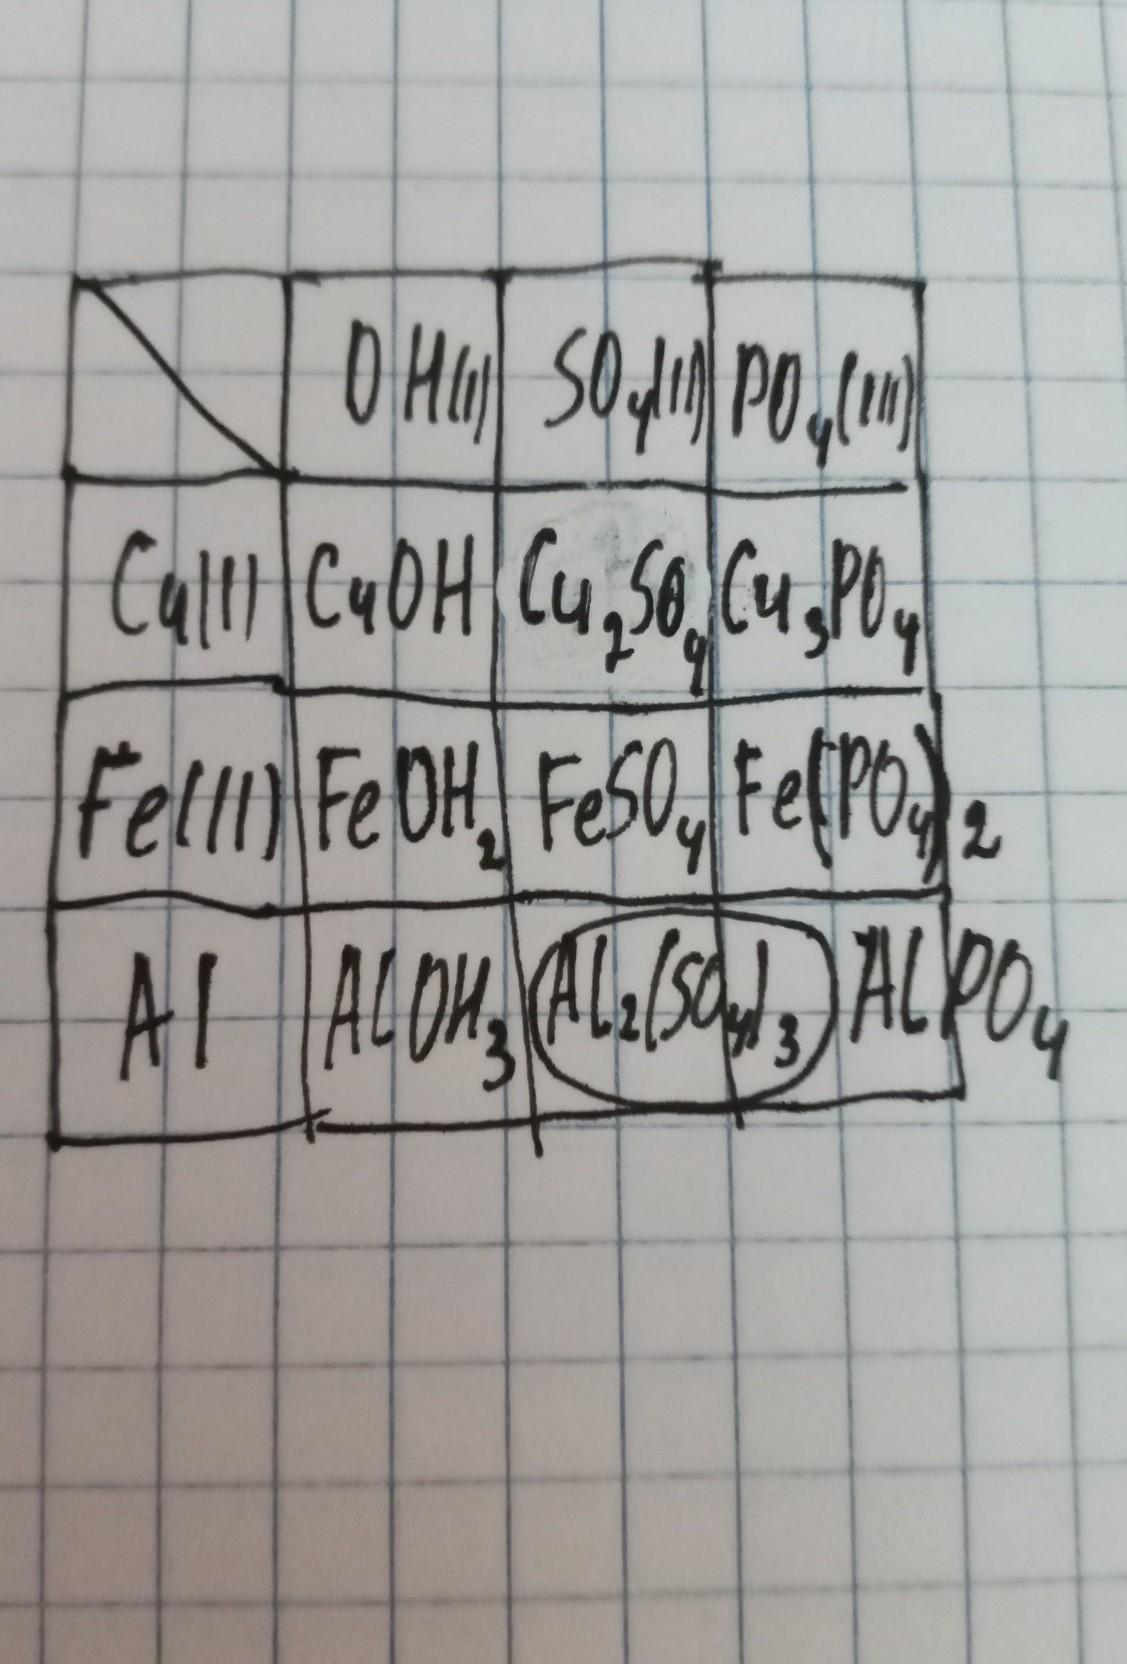 OH(I) SO4(II) PO4(III)
Cu(I) CuOH Cu2SO4 Cu3PO4
Fe(II) FeOH2 FeSO4 Fe(PO4)2
Al AlOH3 Al2(SO4)3 AlPO4